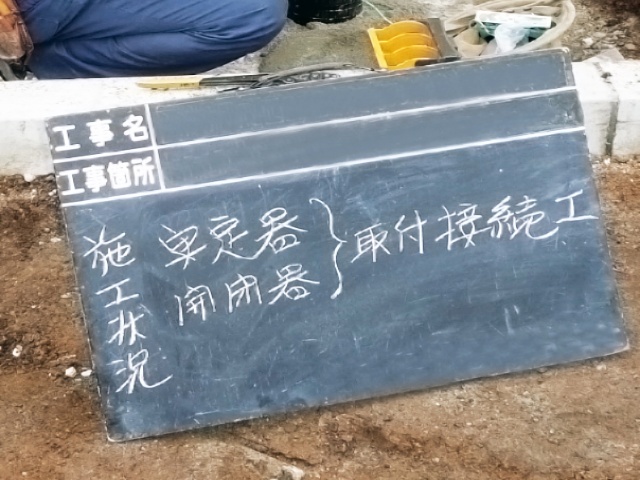 工事名
工事箇所
施工状況
安定器
開閉器
取付接続工